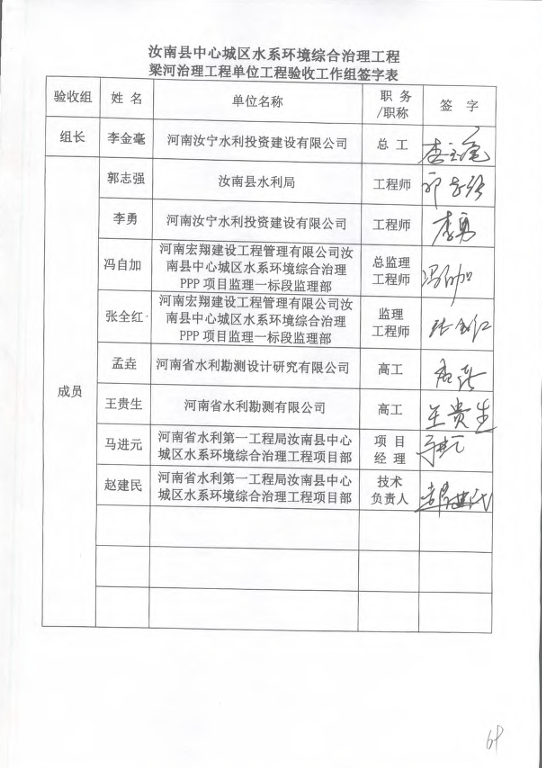 汝南县中心城区水系环境综合治理工程
梁河治理工程单位工程验收工作组签字表
验收组 姓 名 单位名称 职 务/职称 签 字
组长 李金毫 河南汝宁水利投资建设有限公司 总 工
成员
郭志强 汝南县水利局 工程师
李勇 河南汝宁水利投资建设有限公司 工程师 李勇
冯自加 河南宏翔建设工程管理有限公司汝
南县中心城区水系环境综合治理
PPP 项目监理一标段监理部
总监理
工程师
张全红 河南宏翔建设工程管理有限公司汝
南县中心城区水系环境综合治理
PPP 项目监理一标段监理部
监理
工程师
孟垚 河南省水利勘测设计研究有限公司 高工
王贵生 河南省水利勘测有限公司 高工 王贵生
马进元 河南省水利第一工程局汝南县中心
城区水系环境综合治理工程项目部
项 目
经 理
赵建民 河南省水利第一工程局汝南县中心
城区水系环境综合治理工程项目部
技术
负责人